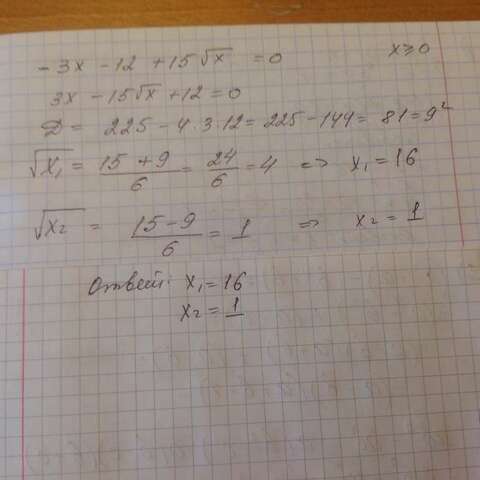 -3x -12 +15√x = 0 x≥0
3x -15√x +12=0
D = 225 - 4·3·12 = 225 - 144 = 81 = 9²
√x₁ = (15+9)/6 = 24/6 = 4 => x₁ = 16
√x₂ = (15-9)/6 = 1 => x₂ = 1
Ответ: x₁ = 16
x₂ = 1